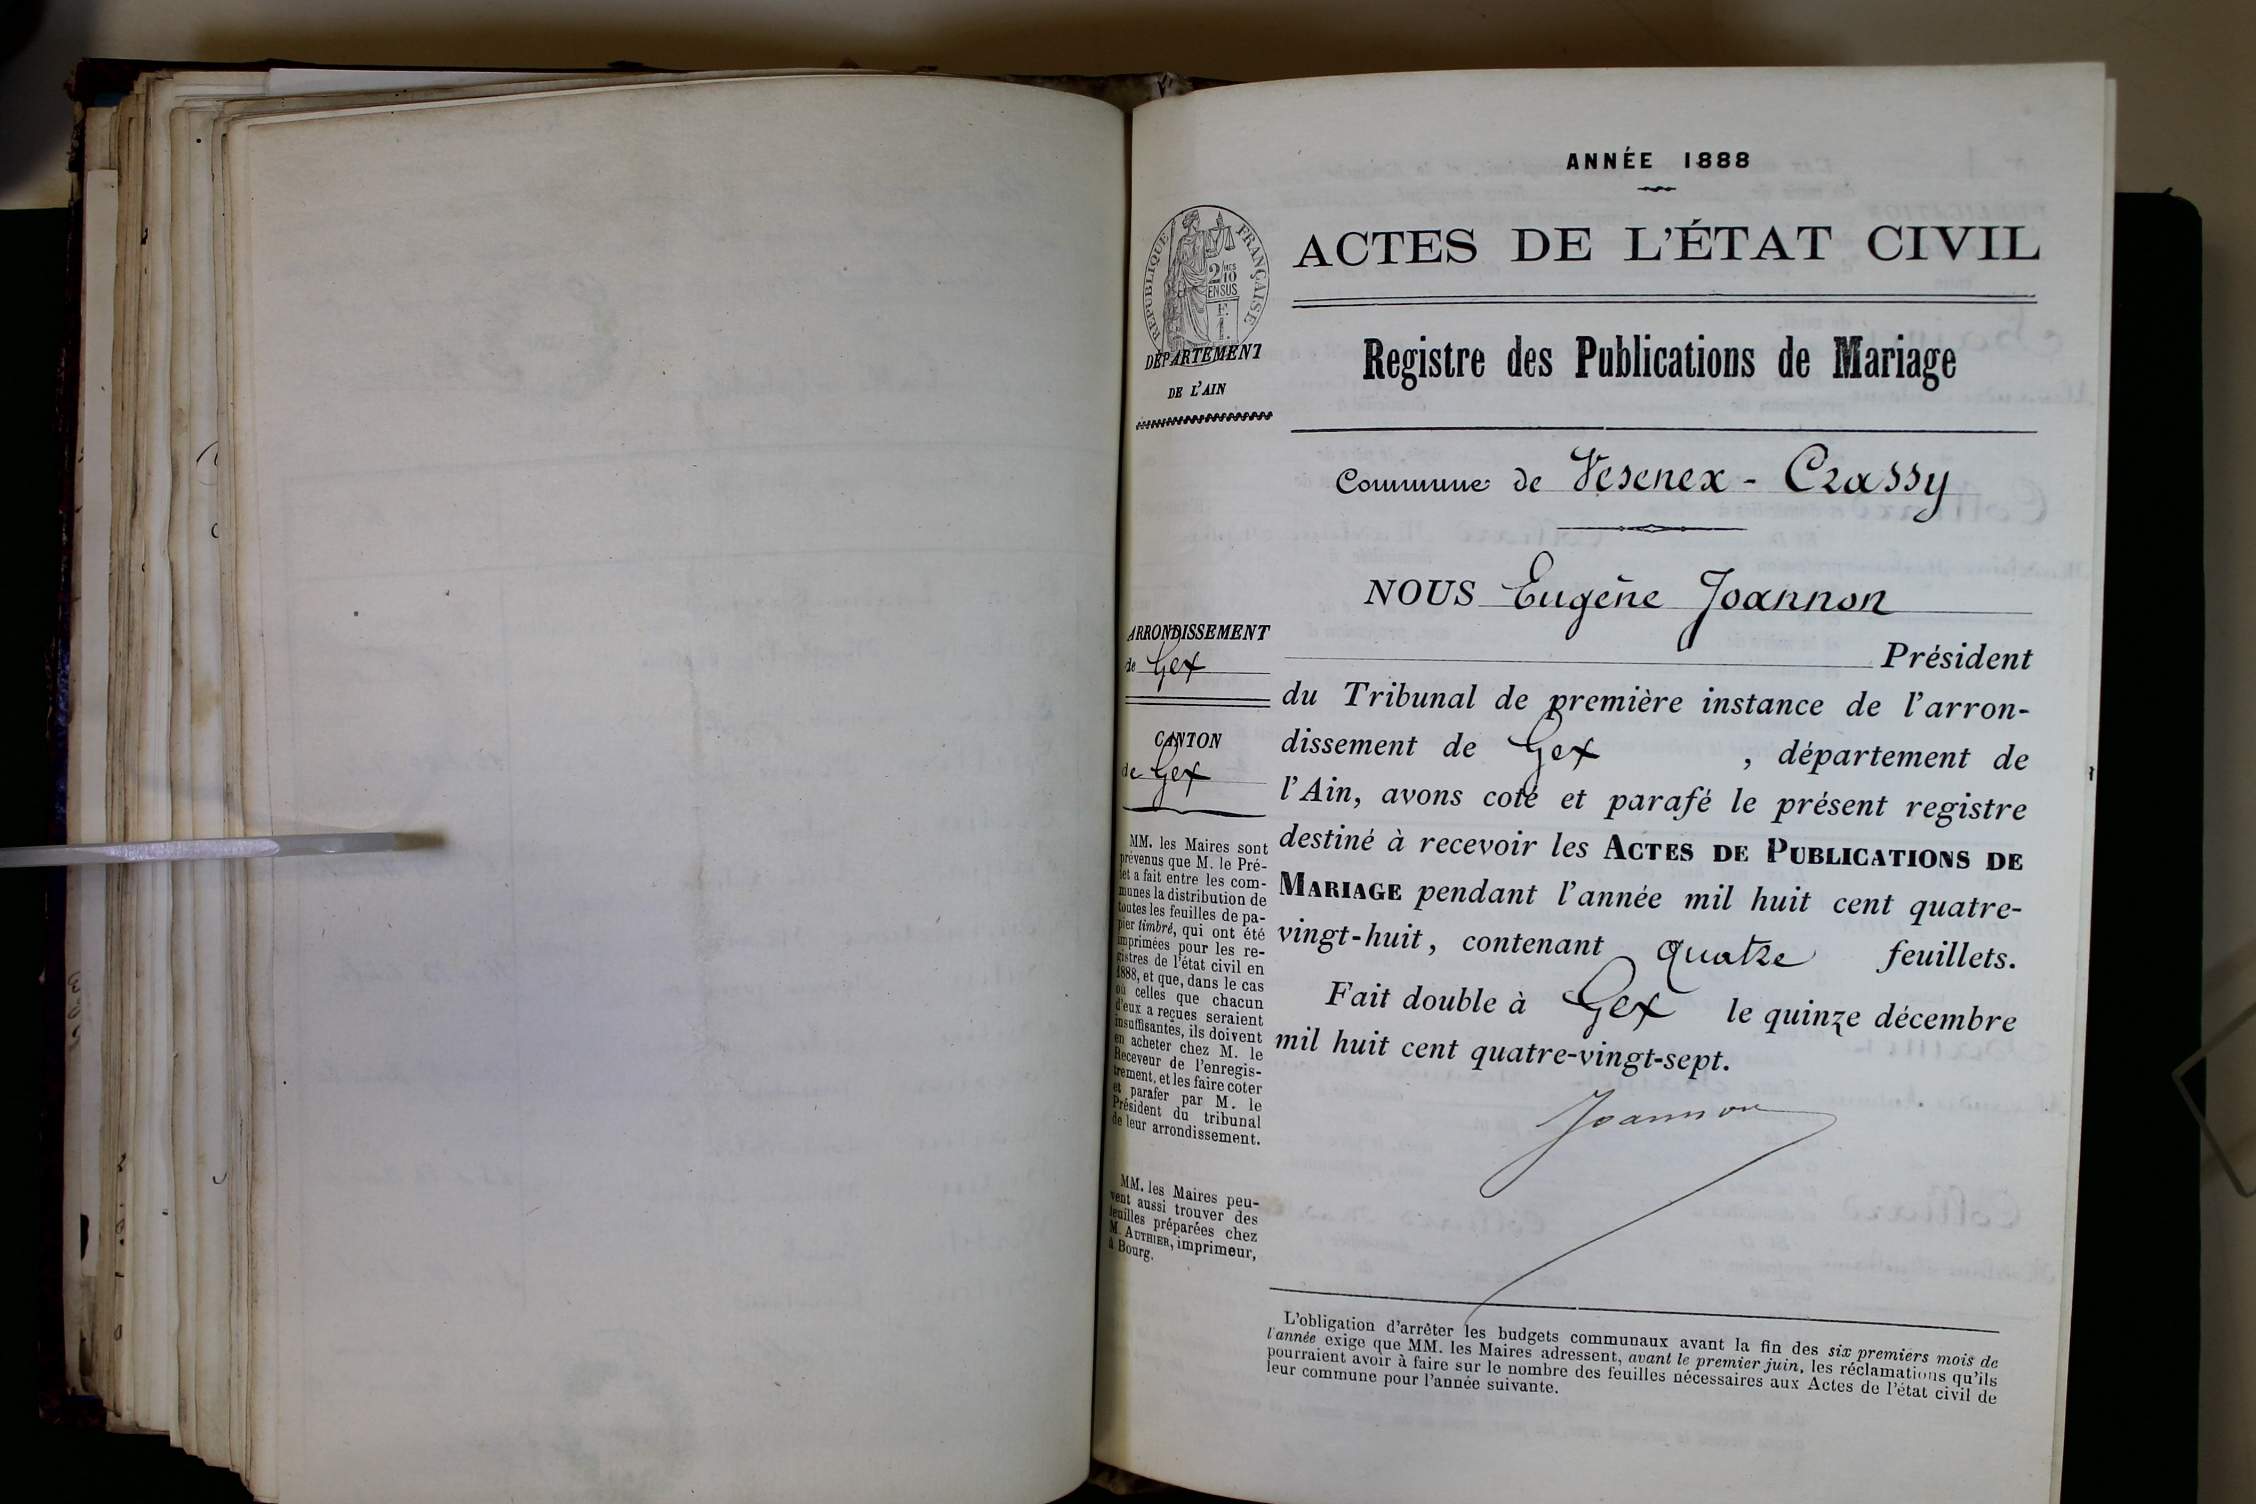 ANNÉE 1888
ACTES DE L'ÉTAT CIVIL
Registre des Publications de Mariage
Commune de Vesenex - Crassy
NOUS Eugène Joannon
Président
du Tribunal de première instance de l'arron-
dissement de Gex , département de
l'Ain, avons coté et parafé le présent registre
destiné à recevoir les ACTES DE PUBLICATIONS DE
MARIAGE pendant l'année mil huit cent quatre-
vingt-huit, contenant quatre feuillets.
Fait double à Gex le quinze décembre
mil huit cent quatre-vingt-sept.
Joannon
L'obligation d'arrêter les budgets communaux avant la fin des six premiers mois de
l'année exige que MM. les Maires adressent, avant le premier juin, les réclamations qu'ils
pourraient avoir à faire sur le nombre des feuilles nécessaires aux Actes de l'état civil de
leur commune pour l'année suivante.
RÉPUBLIQUE FRANÇAISE
2/10
EN SUS
F.
1.
DÉPARTEMENT
DE L'AIN
ARRONDISSEMENT
de Gex
CANTON
de Gex
MM. les Maires sont
prévenus que M. le Pré-
fet a fait entre les com-
munes la distribution de
toutes les feuilles de pa-
pier timbré, qui ont été
imprimées pour les re-
gistres de l'état civil en
1888, et que, dans le cas
où celles que chacun
d'eux a reçues seraient
insuffisantes, ils doivent
en acheter chez M. le
Receveur de l'enregis-
trement, et les faire coter
et parafer par M. le
Président du tribunal
de leur arrondissement.
MM. les Maires peu-
vent aussi trouver des
feuilles préparées chez
M. AUTHIER, imprimeur,
à Bourg.